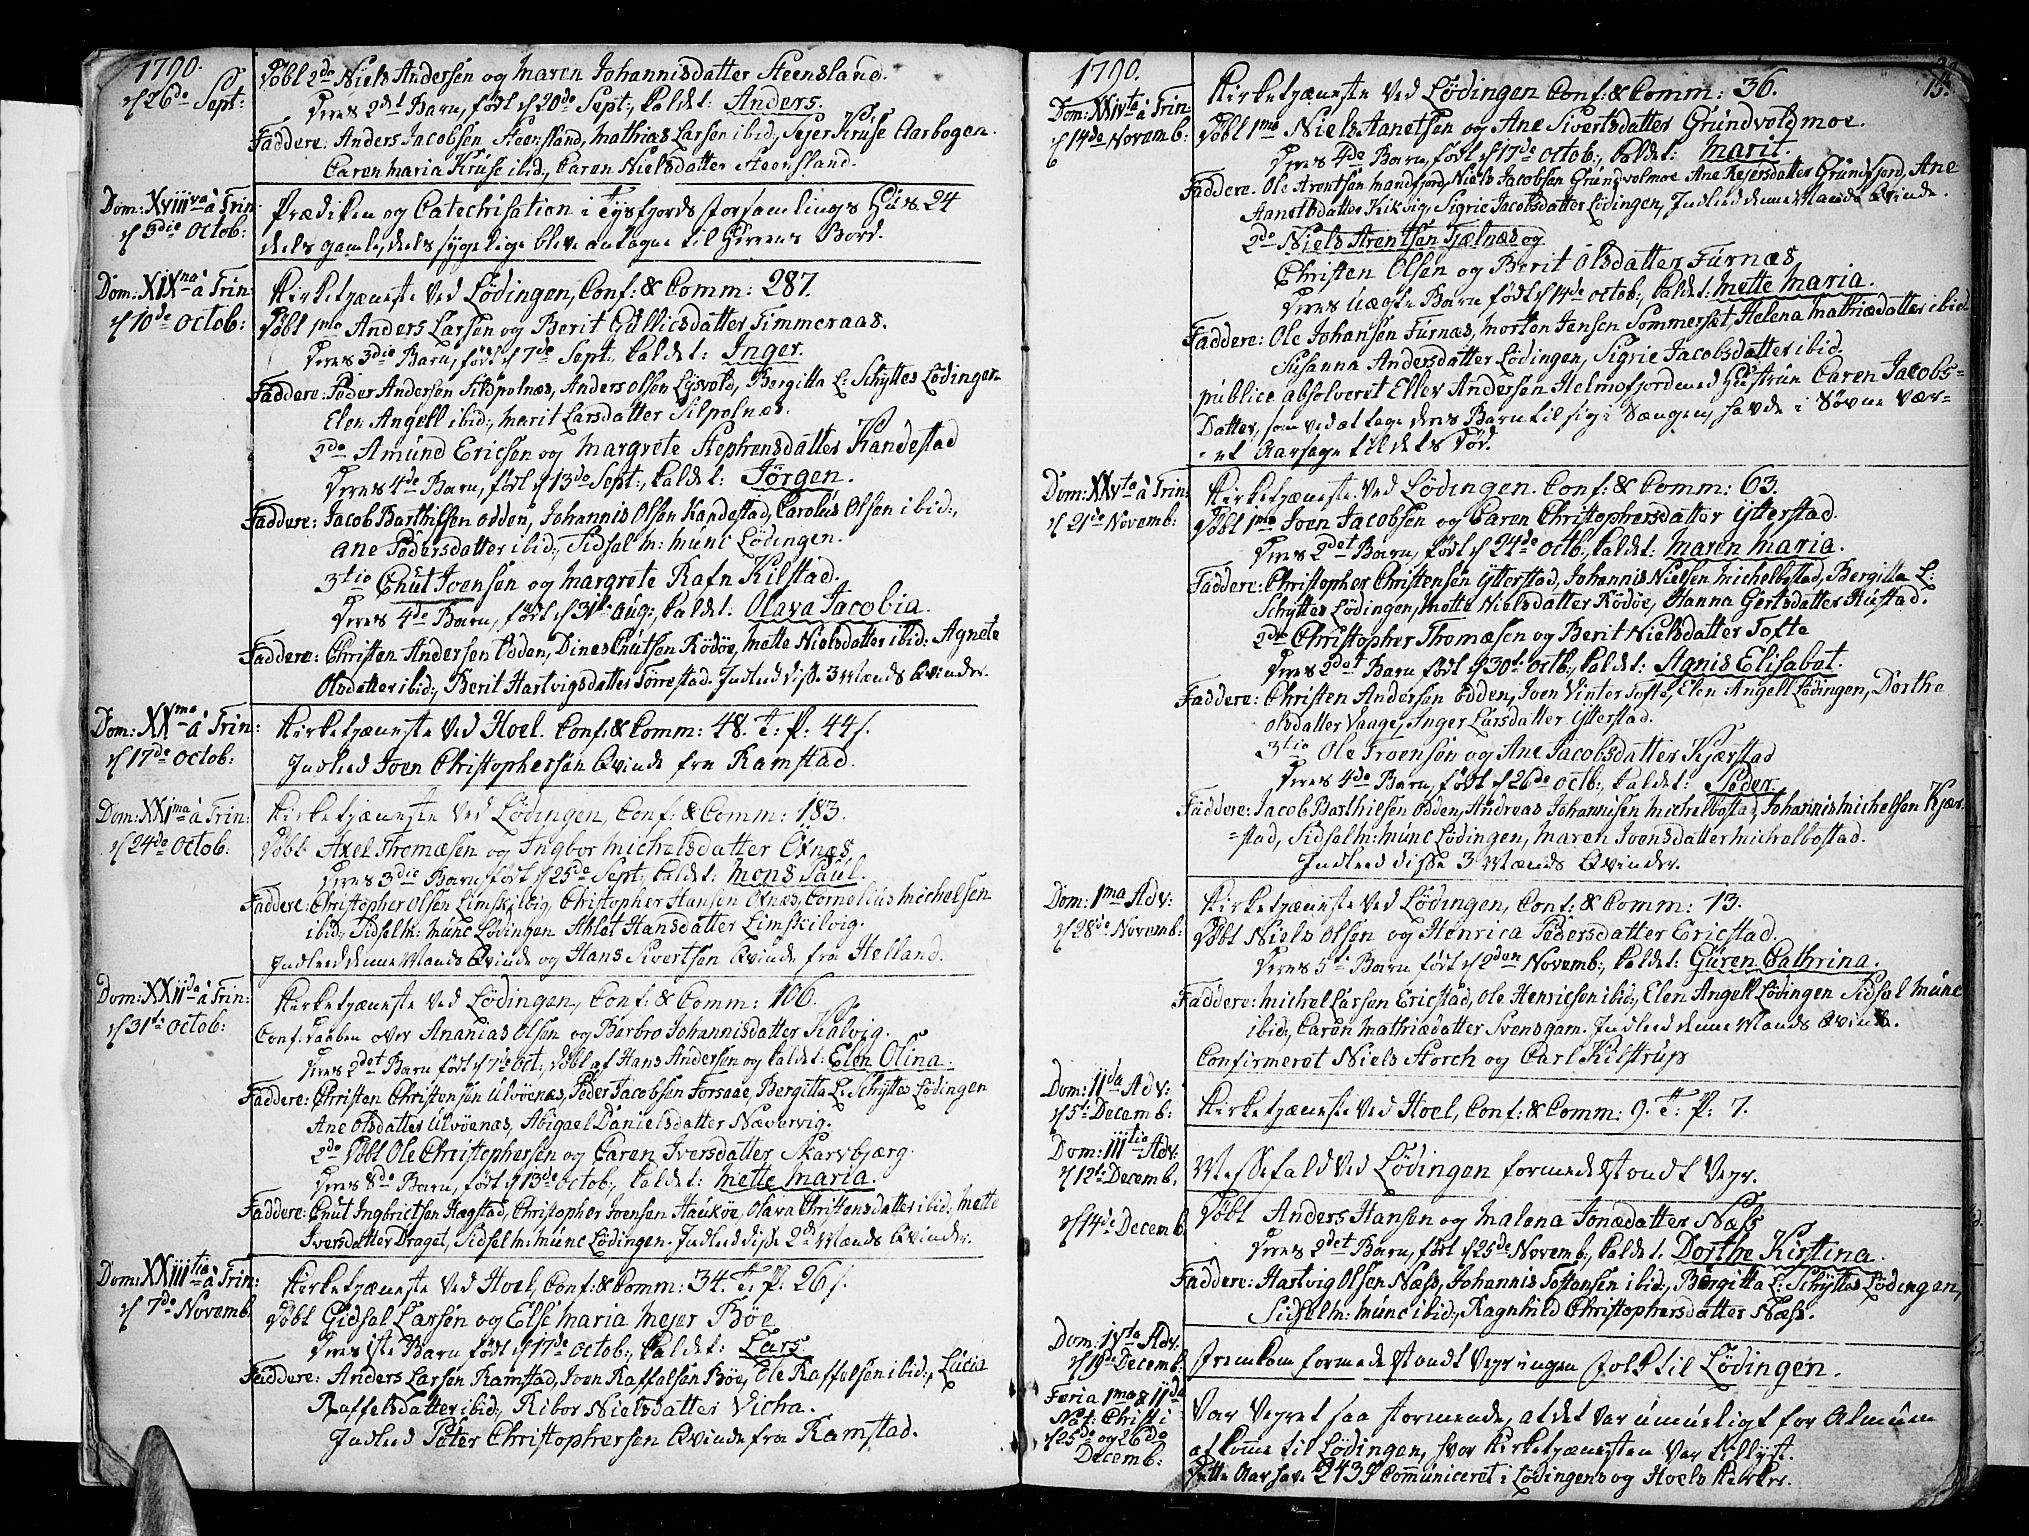 1790.
d 26de Sept:
Døbt 2do Niels Andersen og Maren Johannisdatter Steensland.
Deres 2det Barn, født d 20de Sept:, kaldet: Anders.
Faddere: Anders Jacobsen Steensland, Mathias Larsen ibid:, Sejer Kruse Aarbogen.
Caren Maria Kruse ibid:, Caren Nielsdatter Steensland.
Dom: XVIIIva à Trin:
d 3die Octob:
Prædiken og Catechisation i Tysfjords Forsamlings Huus. 24
deels gamle, deels sygelige bleve antagne til Herrens Bord.
Dom: XIXna à Trin:
d 10de Octob:
Kirketjæneste ved Lødingen, Conf: & Comm: 287.
Døbt 1mo Anders Larsen og Berit Gullicsdatter Timmeraas.
Deres 3die Barn, født d 7de Sept:, kaldet: Inger.
Faddere: Peder Andersen Sildpolnæs, Anders Olsen Lysvold, Bergitta L: Schyttes Lødingen
Elen Angell ibid:, Marit Larsdatter Silpolnæs.
2do Amund Ericsen og Margrete Stephensdatter Kandestad
Deres 4de Barn, født d 13de Sept:, kaldet: Jørgen.
Faddere: Jacob Barthilsen Odden, Johannis Olsen Kandestad, Carolus Olsen ibid:,
Ane Pedersdatter ibid:, Sidsel M: Munc Lødingen.
3tio Cnut Ivensen og Margrete Rafn Kilstad.
Deres 4de Barn, født d 31te Aug:, kaldet: Olava Jacobia.
Faddere: Christen Andersen Odden, Dines Cnutsen Rødøe, Mette Nielsdatter ibid: Agnete
Olsdatter ibid:, Berit Hartvigsdatter Torrestad. Indled disse 3 Mænds Qvinder.
Dom: XXma à Trin:
d 17de Octob:
Kirketjæneste ved Hoel. Conf: & Comm: 48. T: P: 44 s.
Indled Iven Christophersen Qvinde fra Ramstad.
Dom: XXIma à Trin:
d 24de Octob:
Kirketjæneste ved Lødingen, Conf: & Comm: 183.
Døbt Axel Thomæsen og Ingbor Michelsdatter Oxnæs
Deres 3die Barn, født d 25de Sept:, kaldet: Mons Paul.
Faddere: Christopher Olsen Limskilvig, Christopher Hansen Oxnæs, Cornelius Michelsen
ibid:, Sidsel M: Munc Lødingen Ahlet Hansdatter Limskilvig.
Indled denne Mands Qvinde og Hans Sivertsen Qvinde fra Helland.
Dom: XXIIda à Trin:
d 31te Octob:
Kirketjæneste ved Lødingen, Conf: & Comm: 106.
Conf: Daaben over Ananias Olsen og Barbro Johannisdatter Kalvig.
Deres 2det Barn født d 7de Oct:, døbt af Hans Andersen og kaldet: Elen Olina.
Faddere: Christen Christensen Ulvøenæs, Peder Jacobsen Forsaae, Bergitta L: Schyttes Lødingen
Ane Olsdatter Ulvøenæs, Abigael Danielsdatter Nævervig.
2do Døbt Ole Christophersen og Caren Iversdatter Skarvbjerg.
Deres 8de Barn, født d 13de Octob:, kaldet: Mette Maria.
Faddere: Cnut Ingbrictsen Hægstad, Christopher Ivensen Haukøe, Olava Christensdatter ibid:, Mette
Iversdatter Draget, Sidsel M: Munc Lødingen. Indled disse 2de Mænds Qvinder.
Dom: XXIIItia à Trin:
d 7de Novemb:
Kirketjæneste ved Hoel, Conf: & Comm: 34. T: P: 26 s.
Døbt Gidsel Larsen og Else Maria Mejer Bøe
Deres 1ste Barn født d 17de Octob:, kaldet: Lars.
Faddere: Anders Larsen Ramstad, Iven Raffelsen Bøe, Ole Raffelsen ibid:, Lucia
Raffelsdatter ibid:, Ribor Nielsdatter Vicha.
Indled Peter Christophersen Qvinde fra Ramstad.
1790.
15.
Dom: XXIVta à Trin:
d 14de Novemb:
Kirketjæneste ved Lødingen Conf: & Comm: 36.
Døbt 1mo Niels Aanetsen og Ane Sivertsdatter Grundvoldmoe.
Deres 4de Barn, født d 17de Octob:, kaldet: Marit.
Faddere. Ole Arentsen Mandfjord, Niels Jacobsen Grundvolmoe Ane Rejersdatter Grundfjord, Ane
Aanetsdatter Kikvig, Sigrie Jacobsdatter Lødingen, Indled denne Mands Qvinde.
2do Niels Arentsen Tjelnæs og
Christen Olsen og Berit Olsdatter Furnæs
Deres Uægte Barn født d 14de Octob:, kaldet: Mette Maria.
Faddere: Ole Johansen Furnæs, Morten Jensen Sommerset, Helena Mathiædatter ibid:
Susanna Andersdatter Lødingen, Sigrie Jacobsdatter ibid.
publice absolveret Ellev Andersen Helmofjord med Hustrue Caren Jacobs=
Datter, som ved at tage deres Barn til sig i Sængen, havde i Søvne vær=
=et Aarsage til dets Død.
Dom: XXVta à Trin:
d 21de Novemb:
Kirketjæneste ved Lødingen. Conf: & Comm: 63.
Døbt 1mo Iven Jacobsen og Caren Christophersdatter Ytterstad.
Deres 2det Barn, født d 24de Octb:, kaldet: Maren Maria.
Faddere: Christopher Christensen Ytterstad, Johannis Nielsen Michelbostad, Bergitta L:
Schyttes Lødingen, Mette Nielsdatter Rødøe, Hanna Gertsdatter Hustad.
2do Christopher Thomæsen og Berit Nielsdatter Tofte
Deres 2det Barn født d 30te Octb:, kaldet: Agnis Elisabet.
Faddere: Christen Andersen Odden, Iven Vinter Tofte, Elen Angell Lødingen, Dorthe
Olsdatter Vaage, Inger Larsdatter Ytterstad.
3tio Ole Troensen og Ane Jacobsdatter Kjærstad
Deres 4de Barn, født d 26de Octb:, kaldet: Peder.
Faddere: Jacob Barthilsen Odden, Andreas Johannisen Michelbostad, Johannis Michelsen Kjær=
=stad, Sidsel M: Munc Lødingen, Maren Ivensdatter Michelbostad.
Indled disse 3 Mænds Qvinder.
Dom: 1ma Adv:
d 28de Novemb:
Kirketjæneste ved Lødingen, Conf: & Comm: 13.
Døbt Niels Olsen og Henrica Pedersdatter Ericstad.
Deres 5te Barn født d 2den Novemb:, kaldet: Guren Cathrina.
Faddere: Michel Larsen Ericstad, Ole Henricsen ibid:, Elen Angell Lødingen Sidsel Munc
ibid:, Caren Mathiædatter Svensgam. Indled denne Mands Qvinde.
Confirmeret Niels Storch og Carl Kilstrup
Dom: IIda Adv:
d 5te Decemb:
Kirketjæneste ved Hoel, Conf: & Comm: 9. T: P: 7.
Dom: IIItia Adv:
d 12te Decemb:
Messefald ved Lødingen formedelst ondt Vejr.
d 14de Decemb:
Døbt Anders Hansen og Malena Jonædatter Næss
Deres 2det Barn, født d 25de Novemb:, kaldet: Dorthe Kirstina.
Faddere: Hartvig Olsen Næss, Johannis Tostensen ibid:, Bergitta L: Schyttes Lødingen,
Sidsel M: Munc ibid:, Ragnhild Christophersdatter Næss.
Dom: IVta Adv:
d 19de Decemb:
Fremkom formedelst ondt Vejr ingen Folk til Lødingen.
Feria 1ma & IIda
Nat: Christi
d 25de og 26de
Decemb:
Var Vejret saa stormende, at det var umueligt for Almuen
at komme til Lødingen, hvor Kirketjænesten var tillyst.
Dette Aar have 2439 Communiceret i Lødingens og Hoels Kirker.